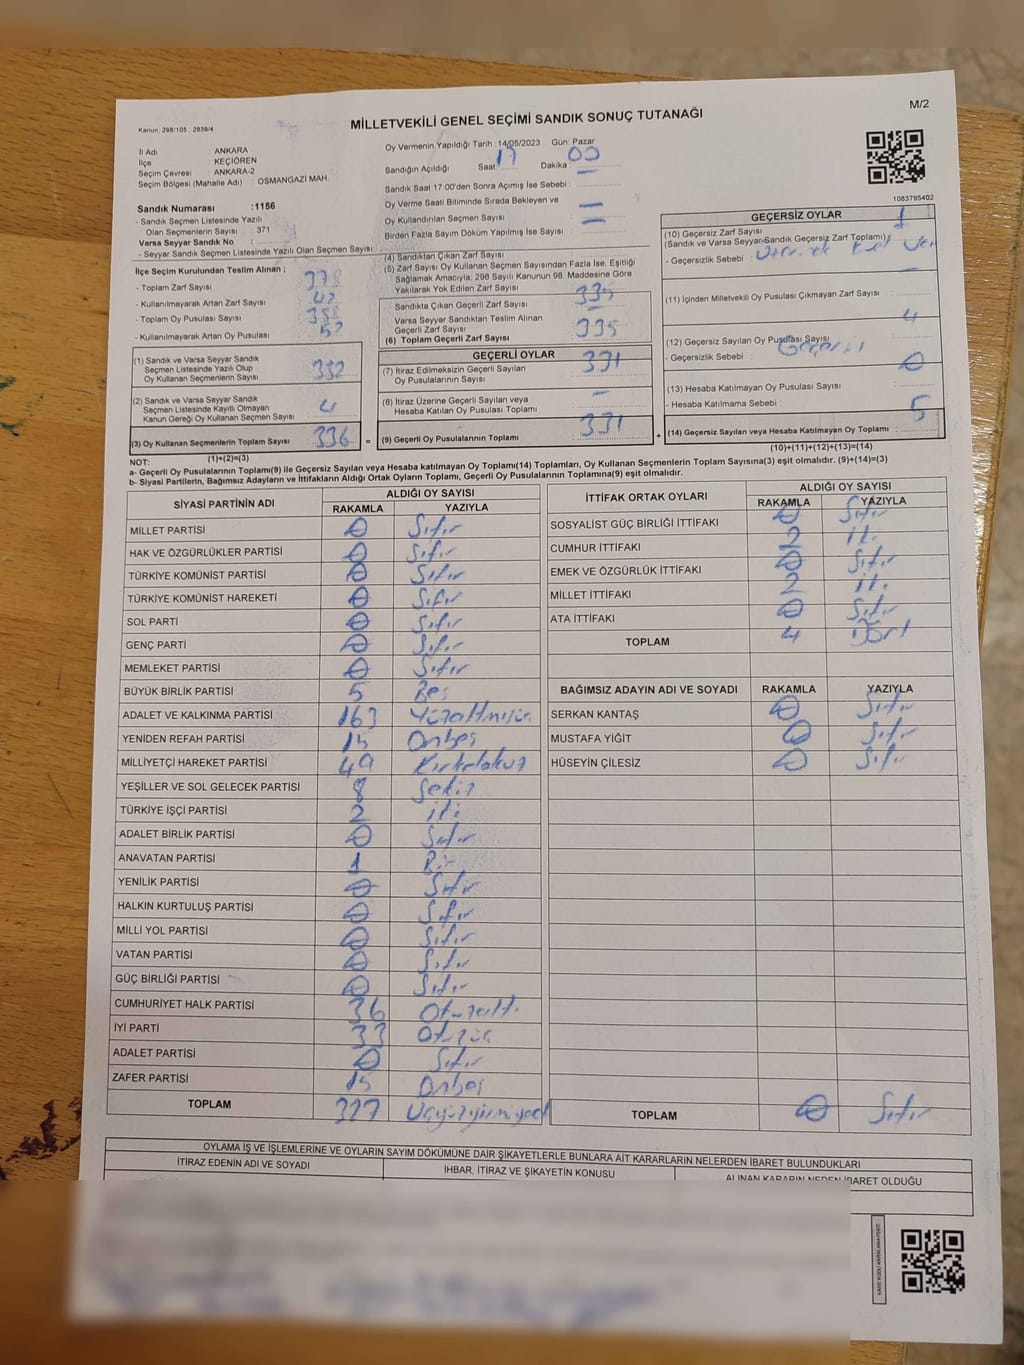 M/2
Kanun. 298/105 , 2839/4
MİLLETVEKİLİ GENEL SEÇİMİ SANDIK SONUÇ TUTANAĞI
İl Adı ANKARA
İlçe KEÇİÖREN
Seçim Çevresi ANKARA-2
Seçim Bölgesi (Mahalle Adı) : OSMANGAZİ MAH.
Sandık Numarası :1156
- Sandık Seçmen Listesinde Yazılı
Olan Seçmenlerin Sayısı : 371
Varsa Seyyar Sandık No :
- Seyyar Sandık Seçmen Listesinde Yazılı Olan Seçmen Sayısı:
Oy Vermenin Yapıldığı Tarih :14/05/2023 Gün: Pazar
Sandığın Açıldığı Saat: 17 Dakika : 00
Sandık Saat 17 00'den Sonra Açımış İse Sebebi :
Oy Verme Saati Bitiminde Sırada Bekleyen ve
Oy Kullandırılan Seçmen Sayısı : —
Birden Fazla Sayım Döküm Yapılmış İse Sayısı : —
1083795402
İlçe Seçim Kurulundan Teslim Alınan ;
- Toplam Zarf Sayısı :
- Kullanılmayarak Artan Zarf Sayısı :
- Toplam Oy Pusulası Sayısı :
- Kullanılmayarak Artan Oy Pusulası :
(1) Sandık ve Varsa Seyyar Sandık
Seçmen Listesinde Yazılı Olup
Oy Kullanan Seçmenlerin Sayısı : 332
(2) Sandık ve Varsa Seyyar Sandık
Seçmen Listesinde Kayıtlı Olmayan
Kanun Gereği Oy Kullanan Seçmen Sayısı : 4
(3) Oy Kullanan Seçmenlerin Toplam Sayısı : 336 =
(1)+(2)=(3)
(4) Sandıktan Çıkan Zarf Sayısı
(5) Zarf Sayısı Oy Kullanan Seçmen Sayısından Fazla İse, Eşitliği
Sağlamak Amacıyla; 298 Sayılı Kanunun 98 Maddesine Göre
Yakılarak Yok Edilen Zarf Sayısı :
Sandıkta Çıkan Geçerli Zarf Sayısı : 335
Varsa Seyyar Sandıktan Teslim Alınan
Geçerli Zarf Sayısı :
(6) Toplam Geçerli Zarf Sayısı : 335
GEÇERLİ OYLAR
(7) İtiraz Edilmeksizin Geçerli Sayılan
Oy Pusulalarının Sayısı : 331
(8) İtiraz Üzerine Geçerli Sayılan veya
Hesaba Katılan Oy Pusulası Toplamı : —
(9) Geçerli Oy Pusulalarının Toplamı : 331 +
GEÇERSİZ OYLAR
(10) Geçersiz Zarf Sayısı 1
(Sandık ve Varsa Seyyar Sandık Geçersiz Zarf Toplamı)
- Geçersizlik Sebebi :
(11) İçinden Milletvekili Oy Pusulası Çıkmayan Zarf Sayısı :
(12) Geçersiz Sayılan Oy Pusulası Sayısı : 4
- Geçersizlik Sebebi :
(13) Hesaba Katılmayan Oy Pusulası Sayısı : 0
- Hesaba Katılmama Sebebi :
(14) Geçersiz Sayılan veya Hesaba Katılmayan Oy Toplamı : 5
(10)+(11)+(12)+(13)=(14)
NOT:
a- Geçerli Oy Pusulalarının Toplamı(9) ile Geçersiz Sayılan veya Hesaba katılmayan Oy Toplamı(14) Toplamları, Oy Kullanan Seçmenlerin Toplam Sayısına(3) eşit olmalıdır. (9)+(14)=(3)
b- Siyasi Partilerin, Bağımsız Adayların ve İttifakların Aldığı Ortak Oyların Toplamı, Geçerli Oy Pusulalarının Toplamına(9) eşit olmalıdır.
SİYASİ PARTİNİN ADI ALDIĞI OY SAYISI
RAKAMLA YAZIYLA
MİLLET PARTİSİ 0 Sıfır
HAK VE ÖZGÜRLÜKLER PARTİSİ 0 Sıfır
TÜRKİYE KOMÜNİST PARTİSİ 0 Sıfır
TÜRKİYE KOMÜNİST HAREKETİ 0 Sıfır
SOL PARTİ 0 Sıfır
GENÇ PARTİ 0 Sıfır
MEMLEKET PARTİSİ 0 Sıfır
BÜYÜK BİRLİK PARTİSİ 5 Beş
ADALET VE KALKINMA PARTİSİ 163 Yüzaltmışüç
YENİDEN REFAH PARTİSİ 15 Onbeş
MİLLİYETÇİ HAREKET PARTİSİ 49 Kırkdokuz
YEŞİLLER VE SOL GELECEK PARTİSİ 8 Sekiz
TÜRKİYE İŞÇİ PARTİSİ 2 iki
ADALET BİRLİK PARTİSİ 0 Sıfır
ANAVATAN PARTİSİ 1 Bir
YENİLİK PARTİSİ 0 Sıfır
HALKIN KURTULUŞ PARTİSİ 0 Sıfır
MİLLİ YOL PARTİSİ 0 Sıfır
VATAN PARTİSİ 0 Sıfır
GÜÇ BİRLİĞİ PARTİSİ 0 Sıfır
CUMHURİYET HALK PARTİSİ 36 Otuzaltı
İYİ PARTİ 33 Otuzüç
ADALET PARTİSİ 0 Sıfır
ZAFER PARTİSİ 15 Onbeş
TOPLAM 327 Üçyüzyirmiyedi
İTTİFAK ORTAK OYLARI ALDIĞI OY SAYISI
RAKAMLA YAZIYLA
SOSYALİST GÜÇ BİRLİĞİ İTTİFAKI 0 Sıfır
CUMHUR İTTİFAKI 2 iki
EMEK VE ÖZGÜRLÜK İTTİFAKI 0 Sıfır
MİLLET İTTİFAKI 2 iki
ATA İTTİFAKI 0 Sıfır
TOPLAM 4 Dört
BAĞIMSIZ ADAYIN ADI VE SOYADI RAKAMLA YAZIYLA
SERKAN KANTAŞ 0 Sıfır
MUSTAFA YİĞİT 0 Sıfır
HÜSEYİN ÇİLESİZ 0 Sıfır
TOPLAM 0 Sıfır
OYLAMA İŞ VE İŞLEMLERİNE VE OYLARIN SAYIM DÖKÜMÜNE DAİR ŞİKAYETLERLE BUNLARA AİT KARARLARIN NELERDEN İBARET BULUNDUKLARI
İTİRAZ EDENİN ADI VE SOYADI İHBAR, İTİRAZ VE ŞİKAYETİN KONUSU ALINAN KARARIN NEDEN İBARET OLDUĞU